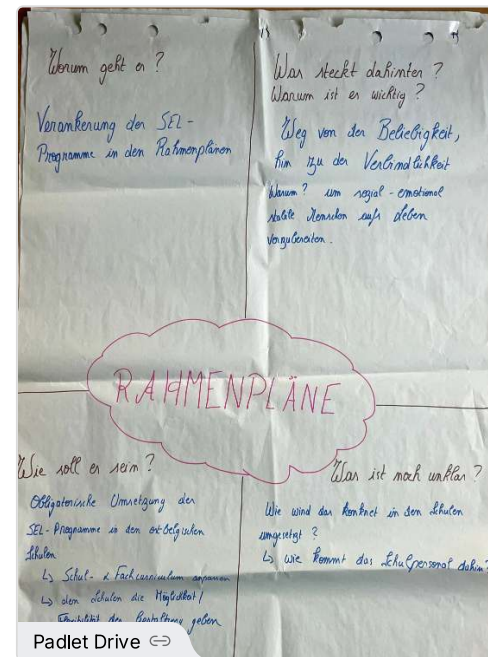 Worum geht es ?
Verankerung der SEL-
Programme in den Rahmenplänen
Was steckt dahinter ?
Warum ist es wichtig ?
Weg von der Beliebigkeit,
hin zu der Verbindlichkeit
Warum ? um sozial-emotional
stabile Menschen aufs Leben
vorzubereiten.
RAHMENPLÄNE
Wie soll es sein ?
Obligatorische Umsetzung der
SEL-Programme in den ostbelgischen
Schulen
↳ Schul- & Fachcurriculum anpassen
↳ den Schulen die Möglichkeit/
Flexibilität der Gestaltung geben
Was ist noch unklar ?
Wie wird das konkret in den Schulen
umgesetzt ?
↳ wie kommt das Schulpersonal dahin?
Padlet Drive